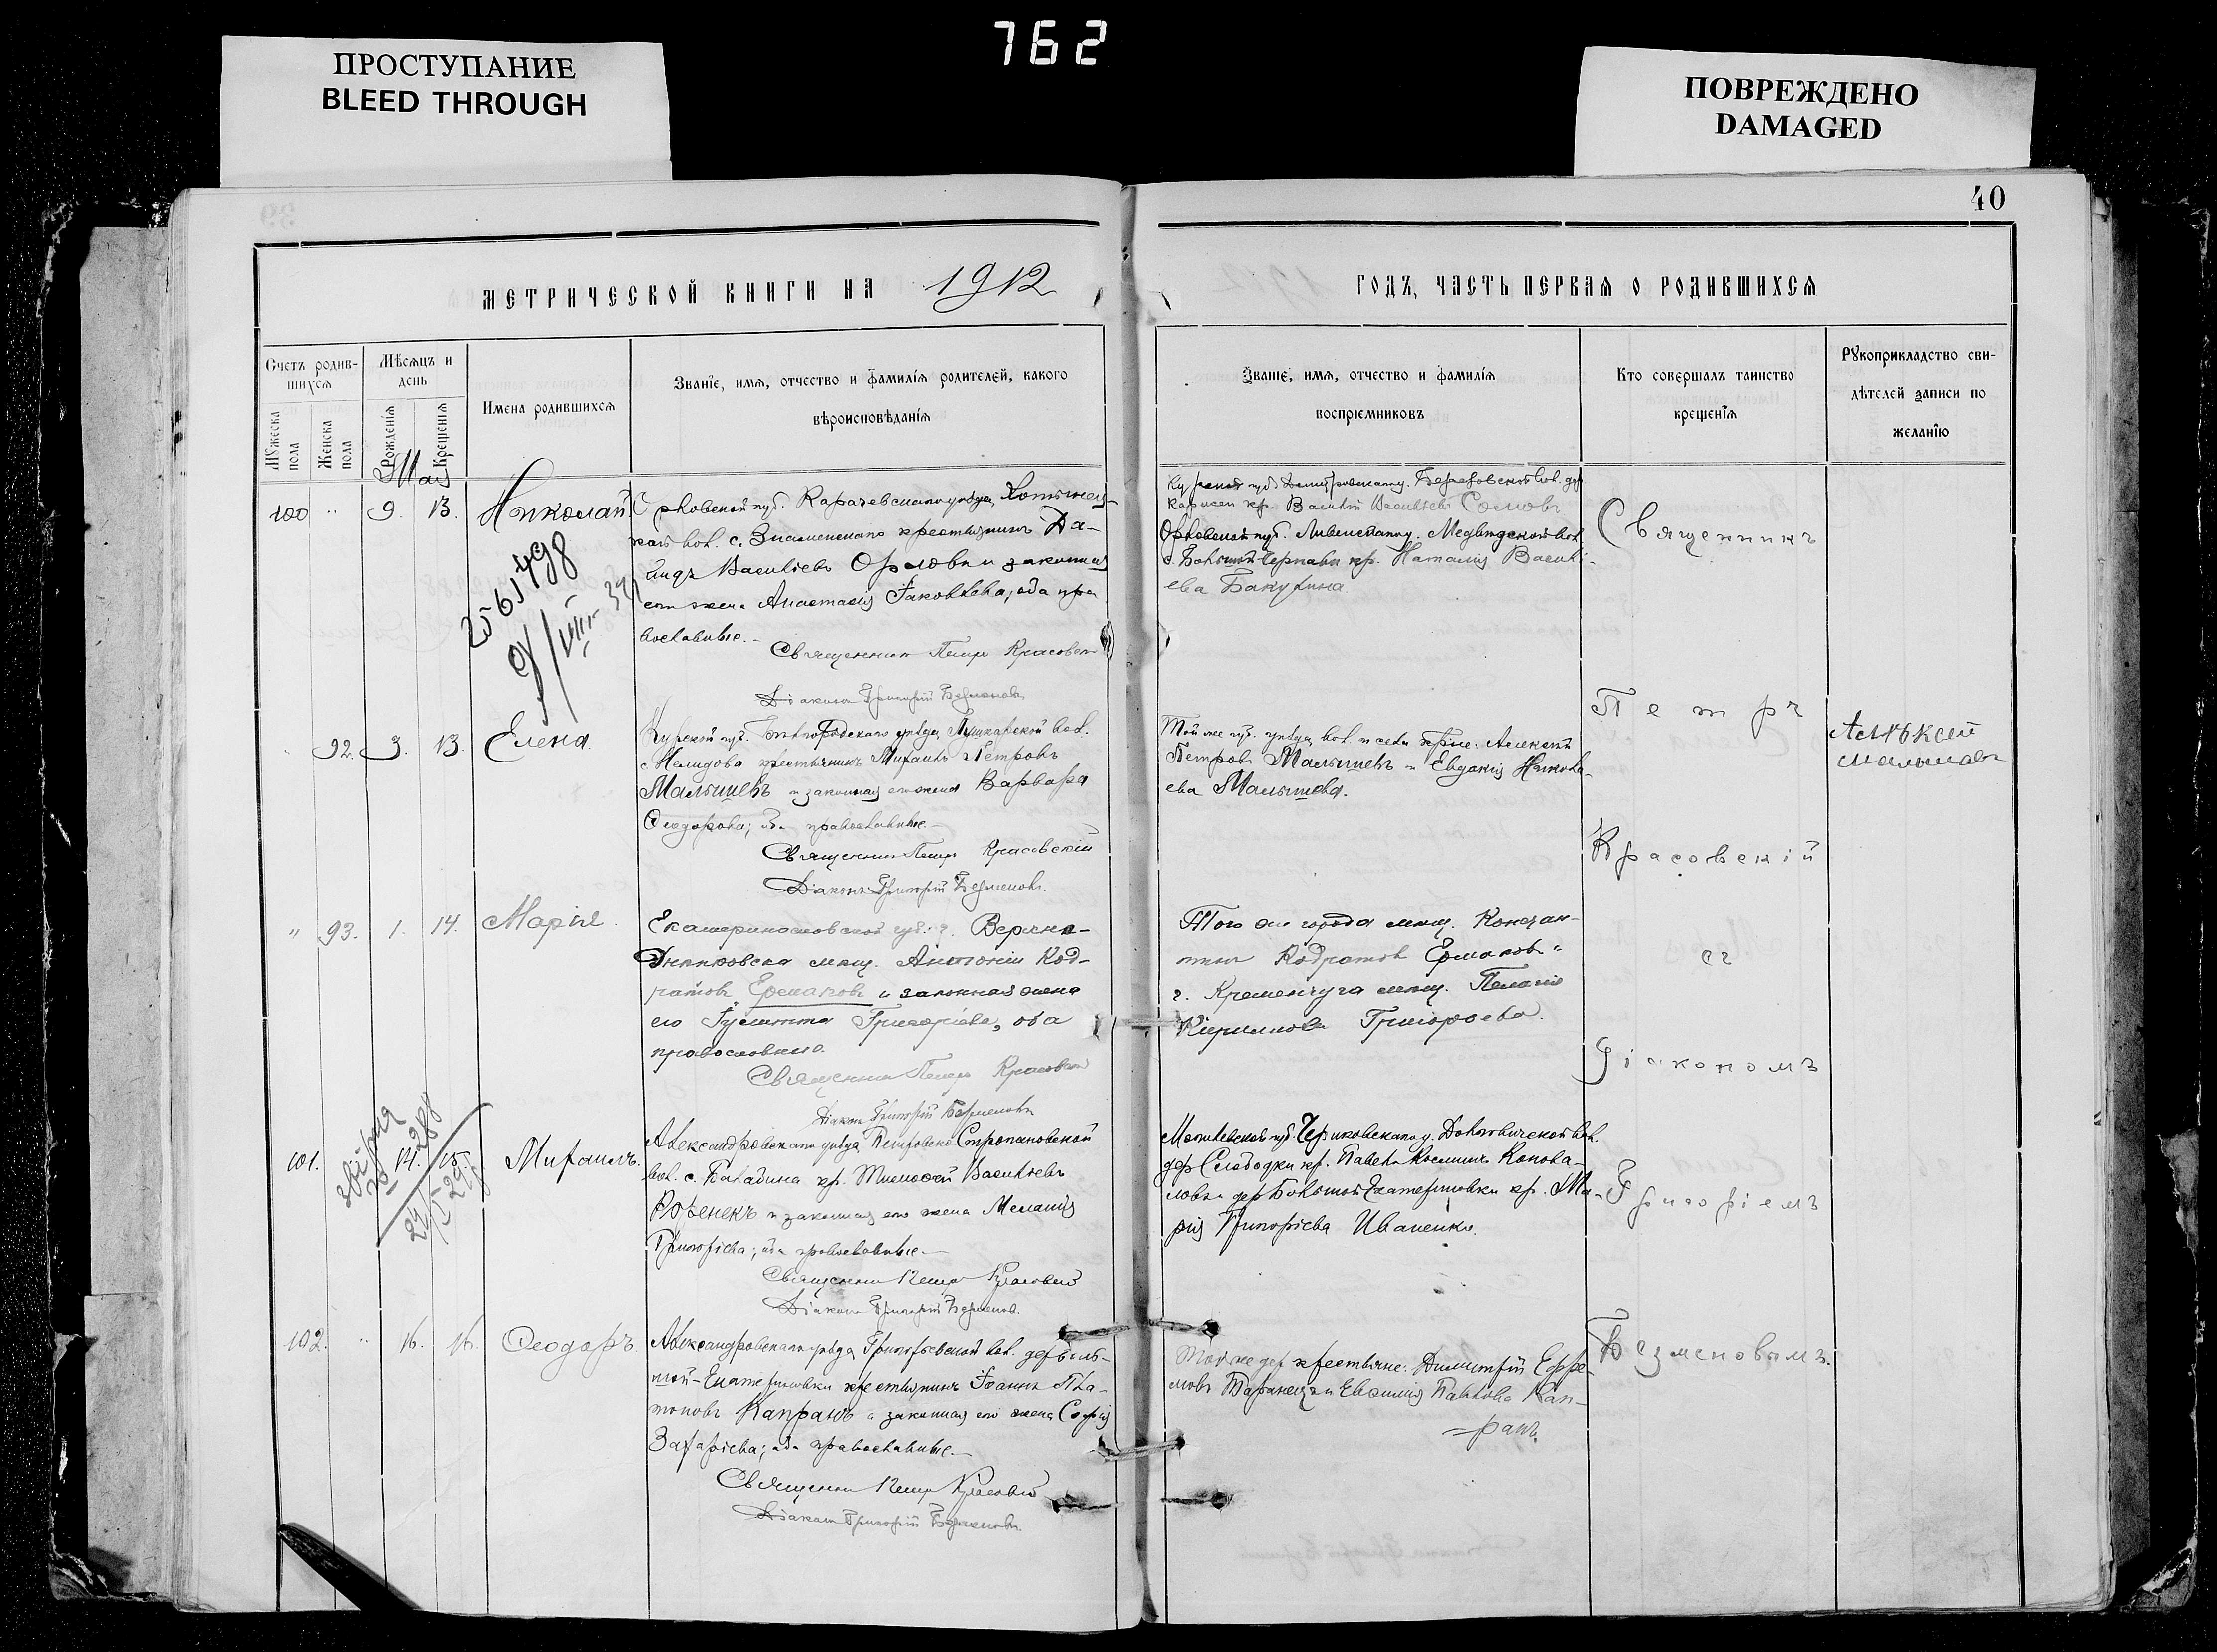 762
ПРОСТУПАНИЕ
BLEED THROUGH
ПОВРЕЖДЕНО
DAMAGED
40
МЕТРИЧЕСКОЙ КНИГИ НА 1912
ГОДЪ, ЧАСТЬ ПЕРВАЯ О РОДИВШИХСЯ
Счетъ родив-
шихся
Мужеска
пола
Женска
пола
Мѣсяцъ и
день
Рожденія
Крещенія
Имена родившихся
Званіе, имя, отчество и фамилія родителей, какого
вѣроисповѣданія
Званіе, имя, отчество и фамилія
воспріемниковъ
Кто совершалъ таинство
крещенія
Рукоприкладство сви-
дѣтелей записи по
желанію
Мая
100 " 9. 13. Николай
Орловской губ. Карачевскаго уѣзда
вол. с. Знаменскаго крестьянинъ Да-
видъ Васильевъ Орловъ и законная
его жена Анастасія Іаковлева; оба пра
вославные.-
Священникъ Петръ Красовскій
Діаконъ Григорій Безменовъ
Курской губ. Дмитровскаго у.
кр. Василій Васильевъ
Орловской губ. Ливенскаго у. Медвѣдской вол.
с. Большой Чернавы кр. Наталія Василі-
ева Бакулина
" 92. 3. 13. Елена.
Курской губ. Бѣлгородскаго уѣзда Пушкарской вол.
крестьянинъ Михаилъ Петровъ
Малышевъ и законная его жена Варвара
Ѳеодорова; оба православные.-
Священникъ Петръ Красовскій
Діаконъ Григорій Безменовъ.
Той же губ. уѣзда, вол. и села крест. Алексѣй
Петровъ Малышевъ и Евдокія Никола-
ева Малышева.
Алѣксей
малышавъ
" 93. 1. 14. Марія.
Екатеринославской губ. г. Верхне-
Днѣпровска мѣщ. Антоній Код-
ратовъ Ермаковъ и законная жена
его Григоріева, оба
православные.
Священникъ Петръ Красовскій
Діаконъ Григорій Безменовъ
Того же города мѣщ. Констан-
тинъ Кодратовъ Ермаковъ и
г. Кременчуга мѣщ. Пелагія
Кирилова Григорьева.
101. 14. 15. Михаилъ.
Александровскаго уѣзда
вол. с. Балабина кр. Тимоѳей Васильевъ
и законная его жена Меланія
Григоріева; оба православные.-
Священникъ Петръ Красовскій
Діаконъ Григорій Безменовъ.
Могилевской губ. Чериковскаго у. вол.
дер. Слободки кр. Павелъ Косминъ Конова-
ловъ и дер. Большой Екатериновки кр. Ма-
рія Григоріева Иваненко.
102. " 16. 16. Ѳеодоръ.
Александровскаго уѣзда Григорьевской вол. дер. Боль-
шой-Екатериновки крестьянинъ Іоаннъ Пла-
тоновъ Капранъ и законная его жена Софія
Захаріева; оба православные.-
Священникъ Петръ Красовскій
Діаконъ Григорій Безменовъ.
Той же дер. крестьяне: Димитрій Ефре-
мовъ Таранецъ и Евѳимія Павлова Кап-
ранъ.
Священникъ
Петръ
Красовскій
съ
Діакономъ
Григоріемъ
Безменовымъ.